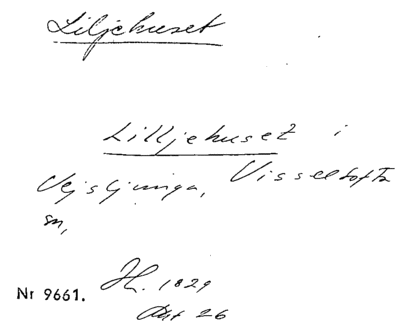 Liljehuset
Lilljehuset i
Vejsljunga, Visseltofta
sn,
Nr 9661. Hl. 1829
Akt 26